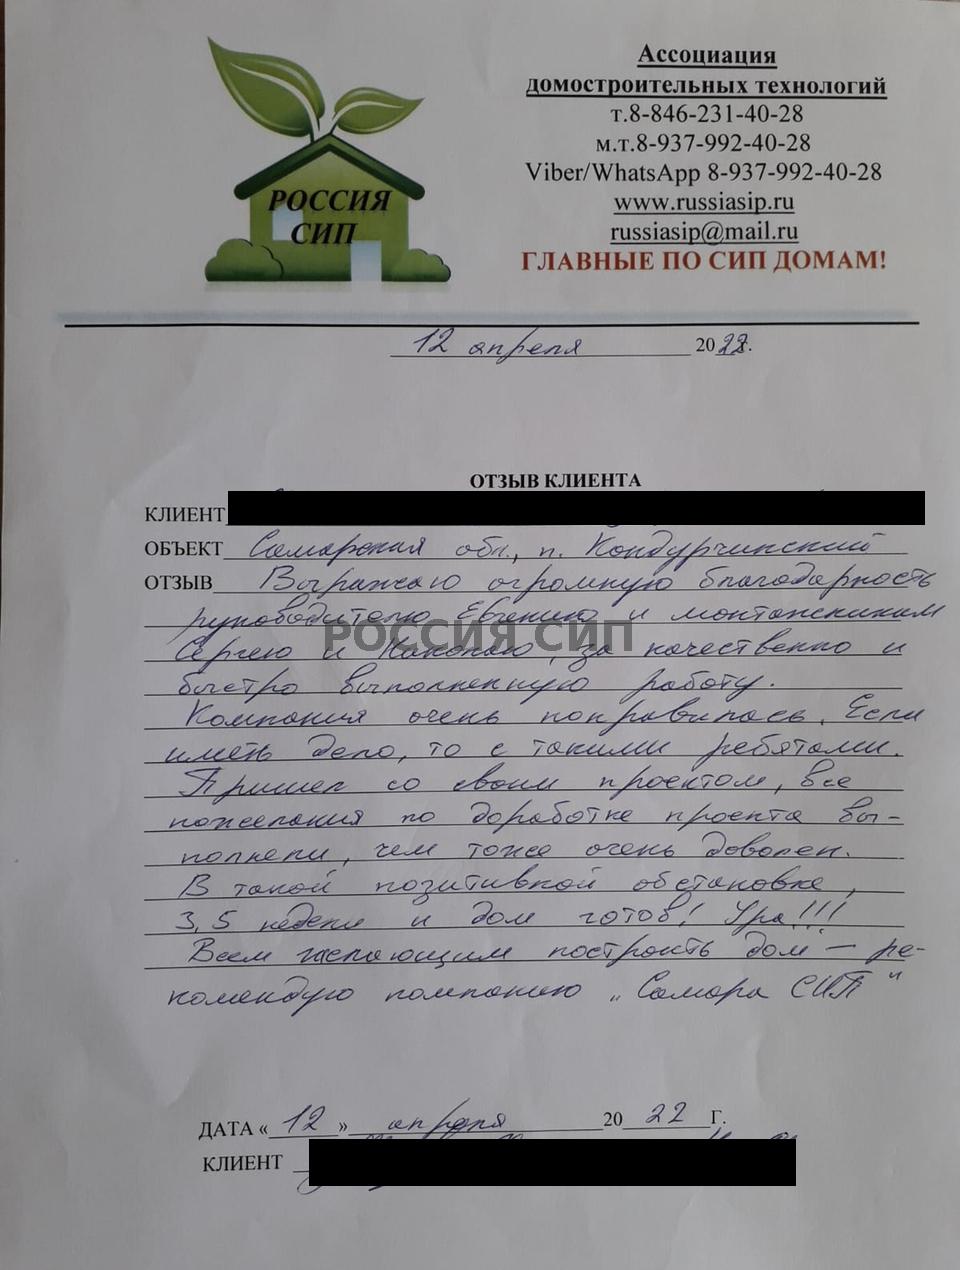 РОССИЯ
СИП
Ассоциация
домостроительных технологий
т.8-846-231-40-28
м.т.8-937-992-40-28
Viber/WhatsApp 8-937-992-40-28
www.russiasip.ru
russiasip@mail.ru
ГЛАВНЫЕ ПО СИП ДОМАМ!
12 апреля 2022г.
ОТЗЫВ КЛИЕНТА
КЛИЕНТ
ОБЪЕКТ Самарская обл., п. Кондурчинский
ОТЗЫВ Выражаю огромную благодарность
руководителю Евгению и монтажникам
РОССИЯ СИП
Сергею и Николаю, за качественно и
быстро выполненную работу.
Компания очень понравилась. Если
иметь дело, то с такими ребятами.
Пришел со своим проектом, все
пожелания по доработке проекта вы-
полнели, чем тоже очень доволен.
В такой позитивной обстановке,
3,5 недели и дом готов! Ура!!!
Всем желающим построить дом — ре-
комендую компанию „Самара СИП"
ДАТА «12» апреля 2022 Г.
КЛИЕНТ